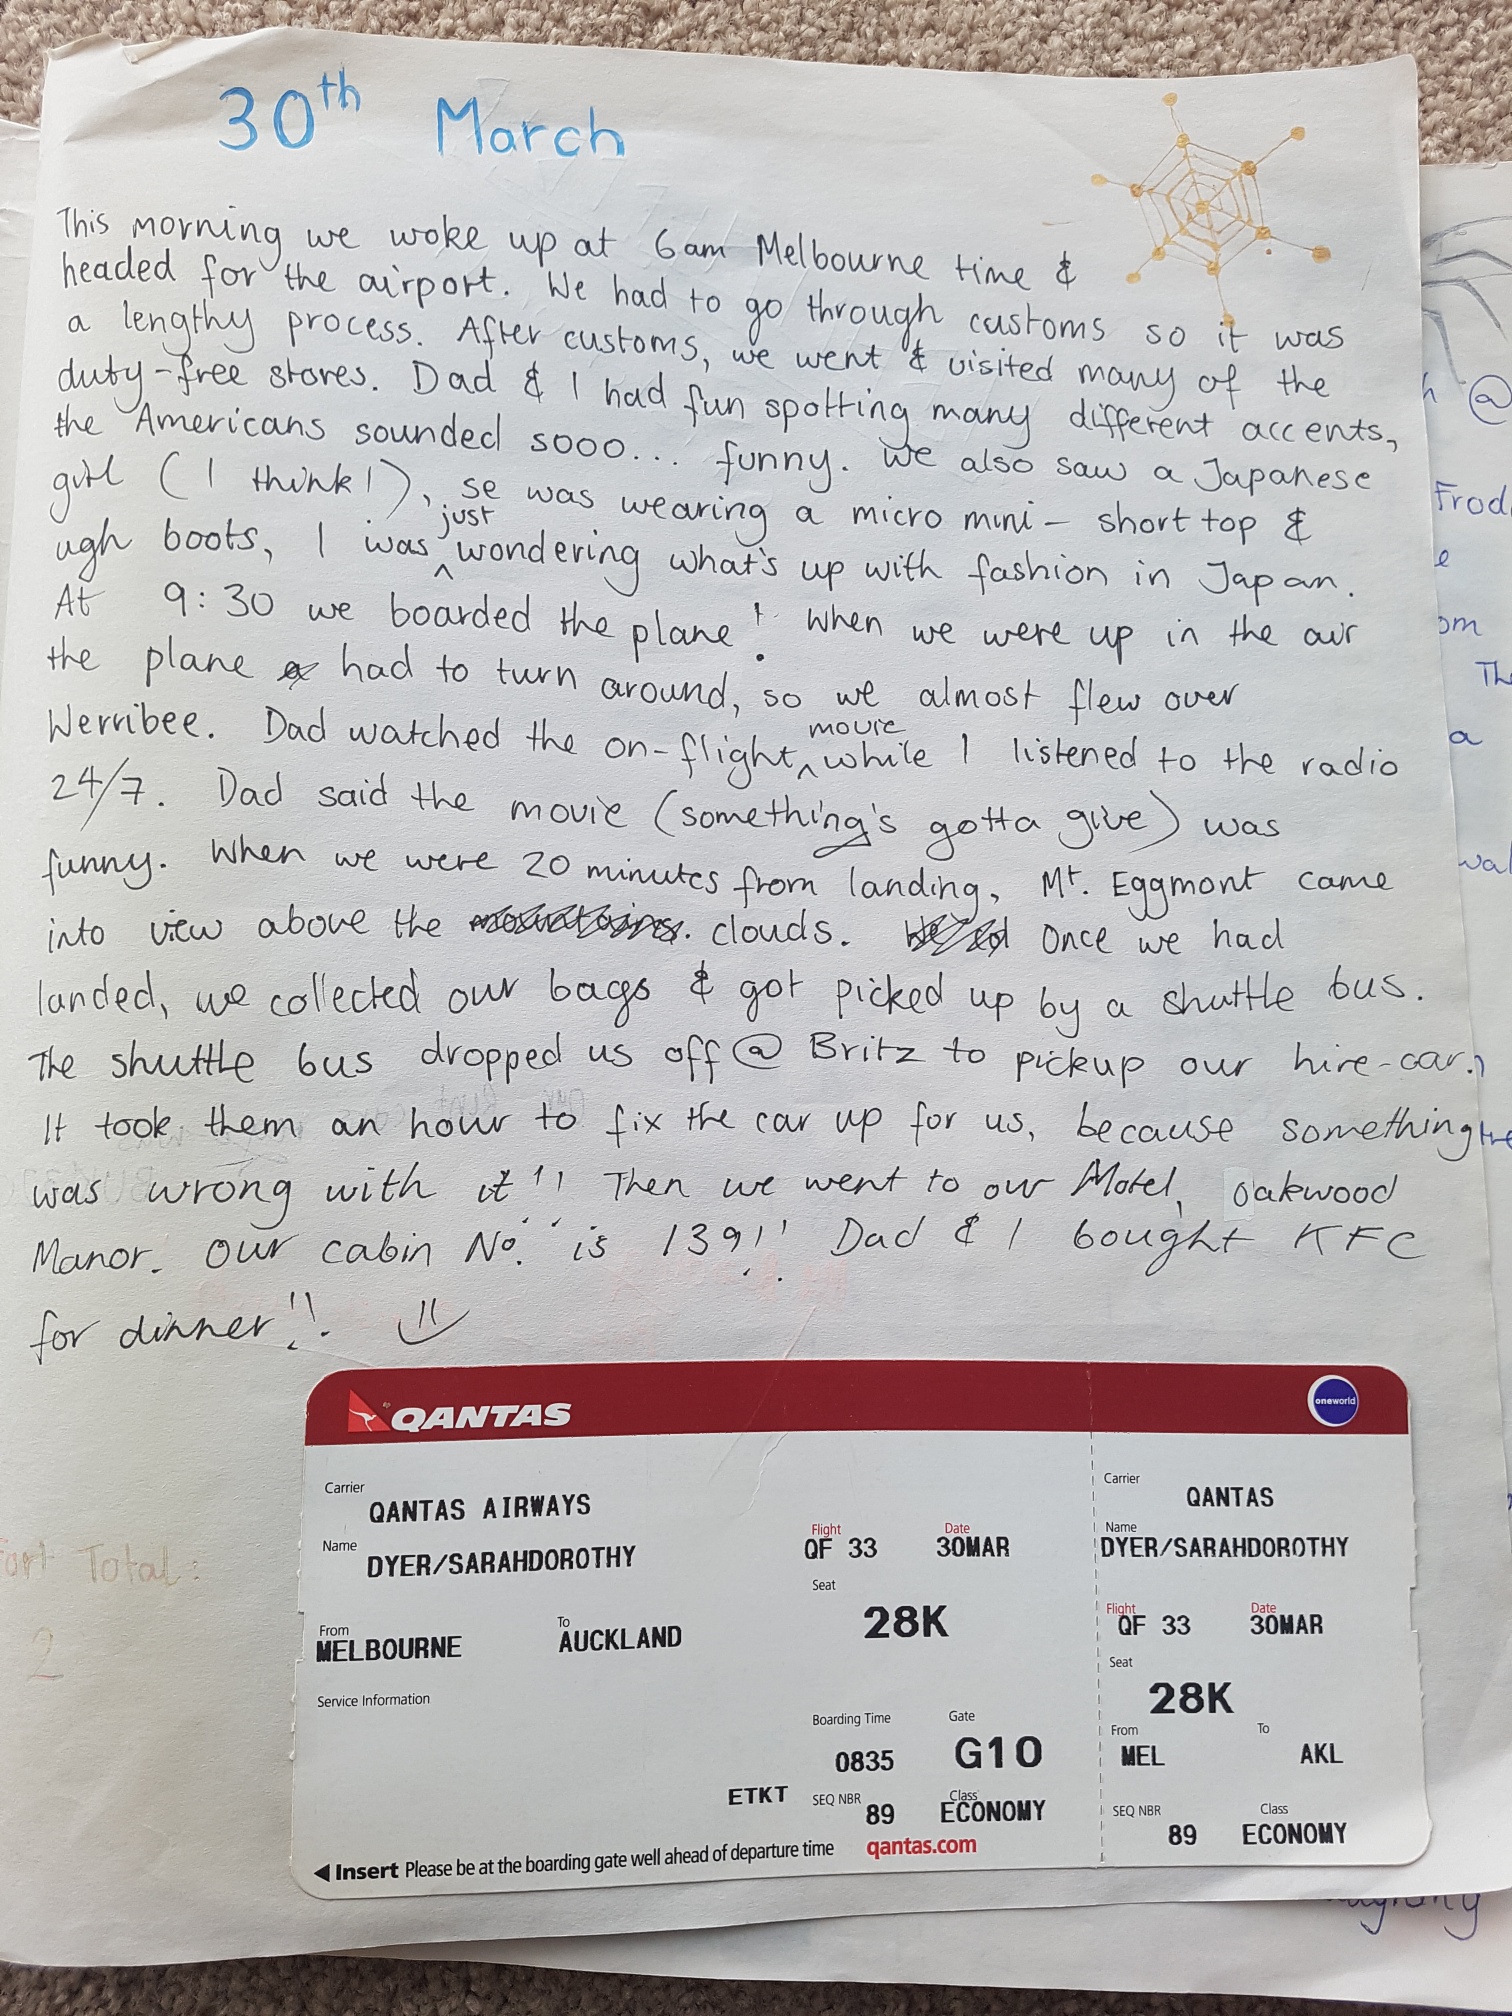 30th March
This morning we woke up at 6am Melbourne time &
headed for the airport. We had to go through customs so it was
a lengthy process. After customs, we went & visited many of the
duty-free stores. Dad & I had fun spotting many different accents,
the Americans sounded sooo... funny. We also saw a Japanese
girl (I think!), se was wearing a micro mini - short top &
ugh boots, I was just wondering what's up with fashion in Japan.
At 9:30 we boarded the plane! When we were up in the air
the plane had to turn around, so we almost flew over
Werribee. Dad watched the on-flight movie while I listened to the radio
24/7. Dad said the movie (something's gotta give) was
funny. When we were 20 minutes from landing, Mt. Eggmont came
into view above the mountains. clouds. Once we had
landed, we collected our bags & got picked up by a shuttle bus.
The shuttle bus dropped us off @ Britz to pickup our hire-car.
It took them an hour to fix the car up for us, because something
was wrong with it!! Then we went to our Motel, Oakwood
Manor. Our cabin No. is 139!! Dad & I bought KFC
for dinner!!.
QANTAS
oneworld
Carrier
QANTAS AIRWAYS
Name
DYER/SARAHDOROTHY
Flight
QF 33
Date
30MAR
Seat
28K
From
MELBOURNE
To
AUCKLAND
Service Information
Boarding Time
0835
Gate
G10
ETKT
SEQ NBR
89
Class
ECONOMY
◀ Insert Please be at the boarding gate well ahead of departure time qantas.com
Carrier
QANTAS
Name
DYER/SARAHDOROTHY
Flight
QF 33
Date
30MAR
Seat
28K
From
MEL
To
AKL
SEQ NBR
89
Class
ECONOMY
Total:
2
@
Frod